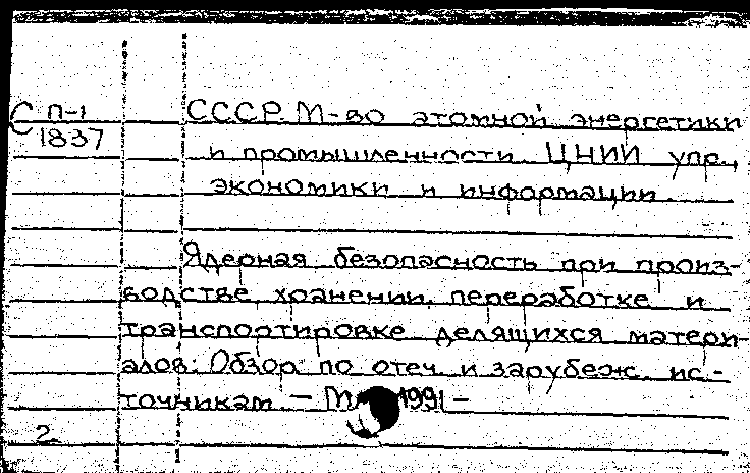 С П-1
1837
СССР. М-во атомной энергетики
и промышленности. ЦНИИ упр.,
экономики и информации.
Ядерная безопасность при произ-
водстве, хранении, переработке и
транспортировке делящихся матери-
алов: Обзор по отеч. и зарубеж. ис-
точникам. — М. 1991 —
2